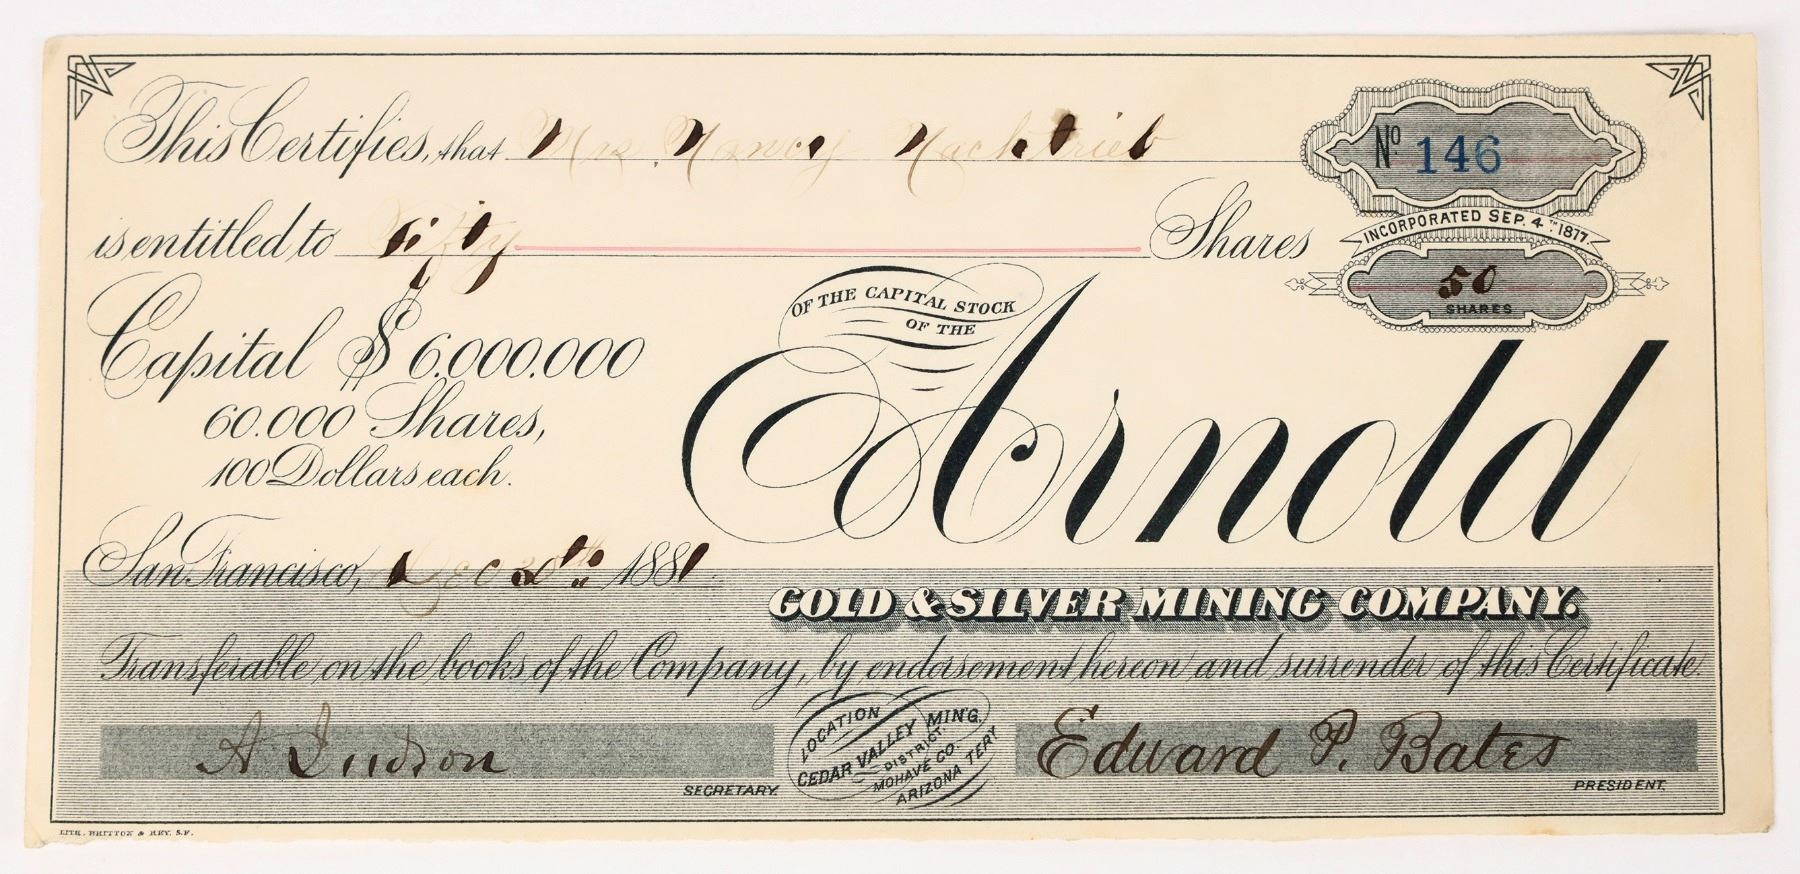 This Certifies, that Mrs. Nancy Nachtrieb
No 146
is entitled to Fifty Shares
INCORPORATED SEP. 4TH 1877.
50
SHARES
OF THE CAPITAL STOCK
OF THE
Capital $6.000.000
60.000 Shares,
100 Dollars each.
Arnold
San Francisco, Dec 30th 1881
GOLD & SILVER MINING COMPANY.
Transferable on the books of the Company, by endorsement hereon and surrender of this Certificate.
A Judson
SECRETARY.
LOCATION
CEDAR VALLEY MIN'G.
DISTRICT.
MOHAVE CO.
ARIZONA TERY.
Edward P. Bates
PRESIDENT.
LITH. BRITTON & REY. S.F.